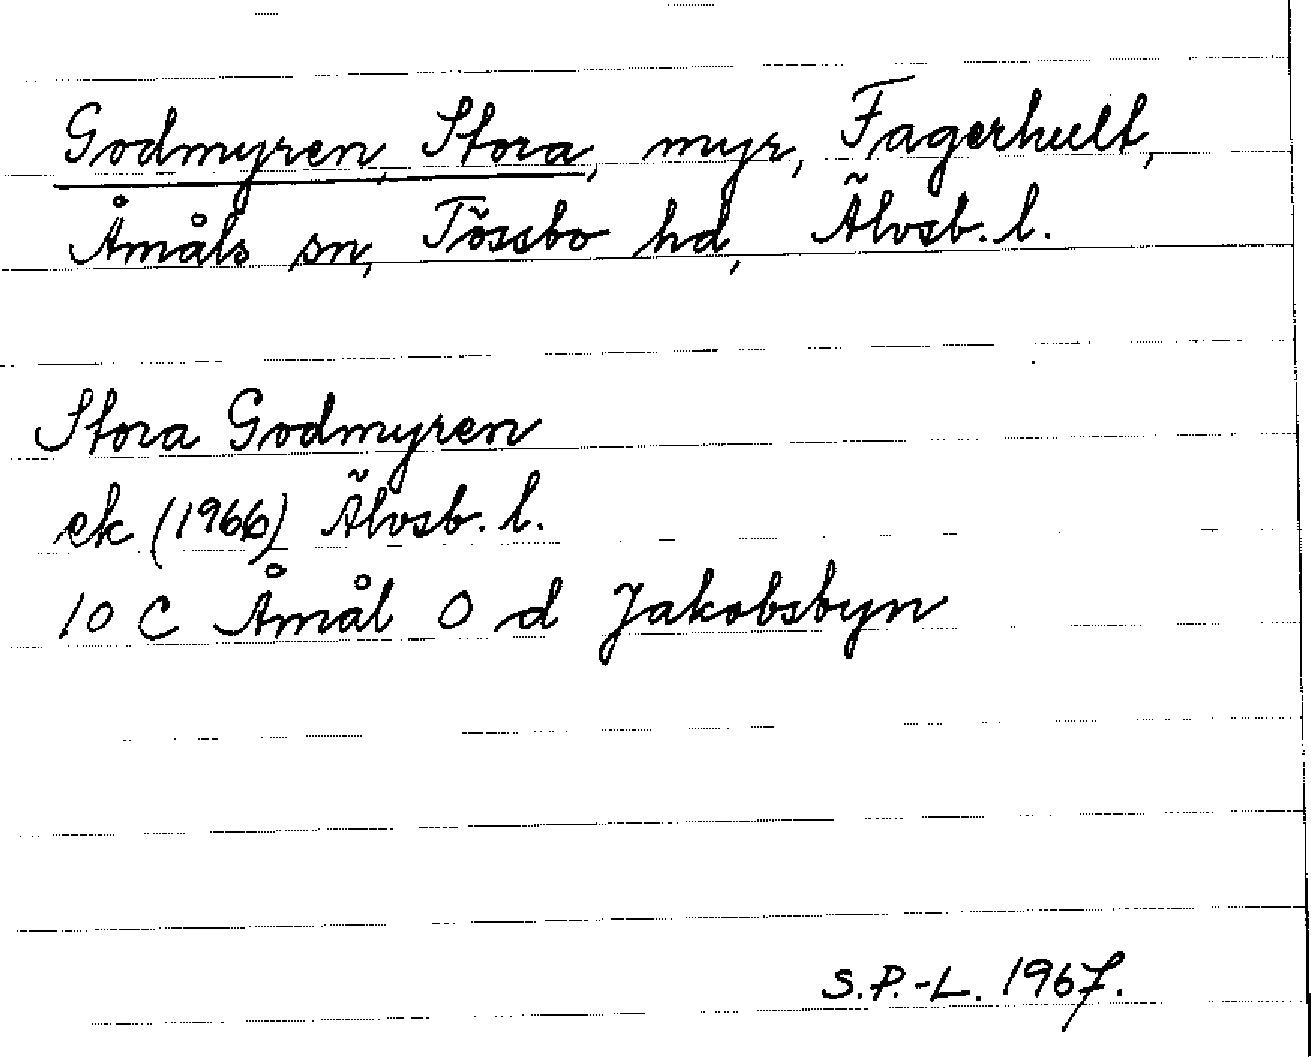 Godmyren, Stora, myr, Fagerhult,
Åmåls sn, Tössbo hd, Älvsb. l.
Stora Godmyren
ek (1966) Älvsb. l.
10 C Åmål 0 d Jakobsbyn
S.P.-L. 1967.